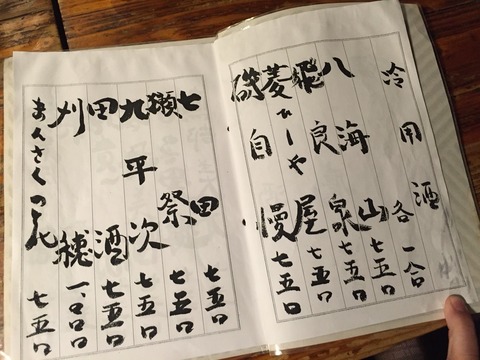 冷用酒 各一合
八海山 七五〇
飛良泉 七五〇
菱ひしや屋 七五〇
磯自慢 七五〇
七田 七五〇
獺祭 七五〇
九平次 七五〇
田酒 七五〇
刈穂 一、〇〇〇
まんさくの花 七五〇